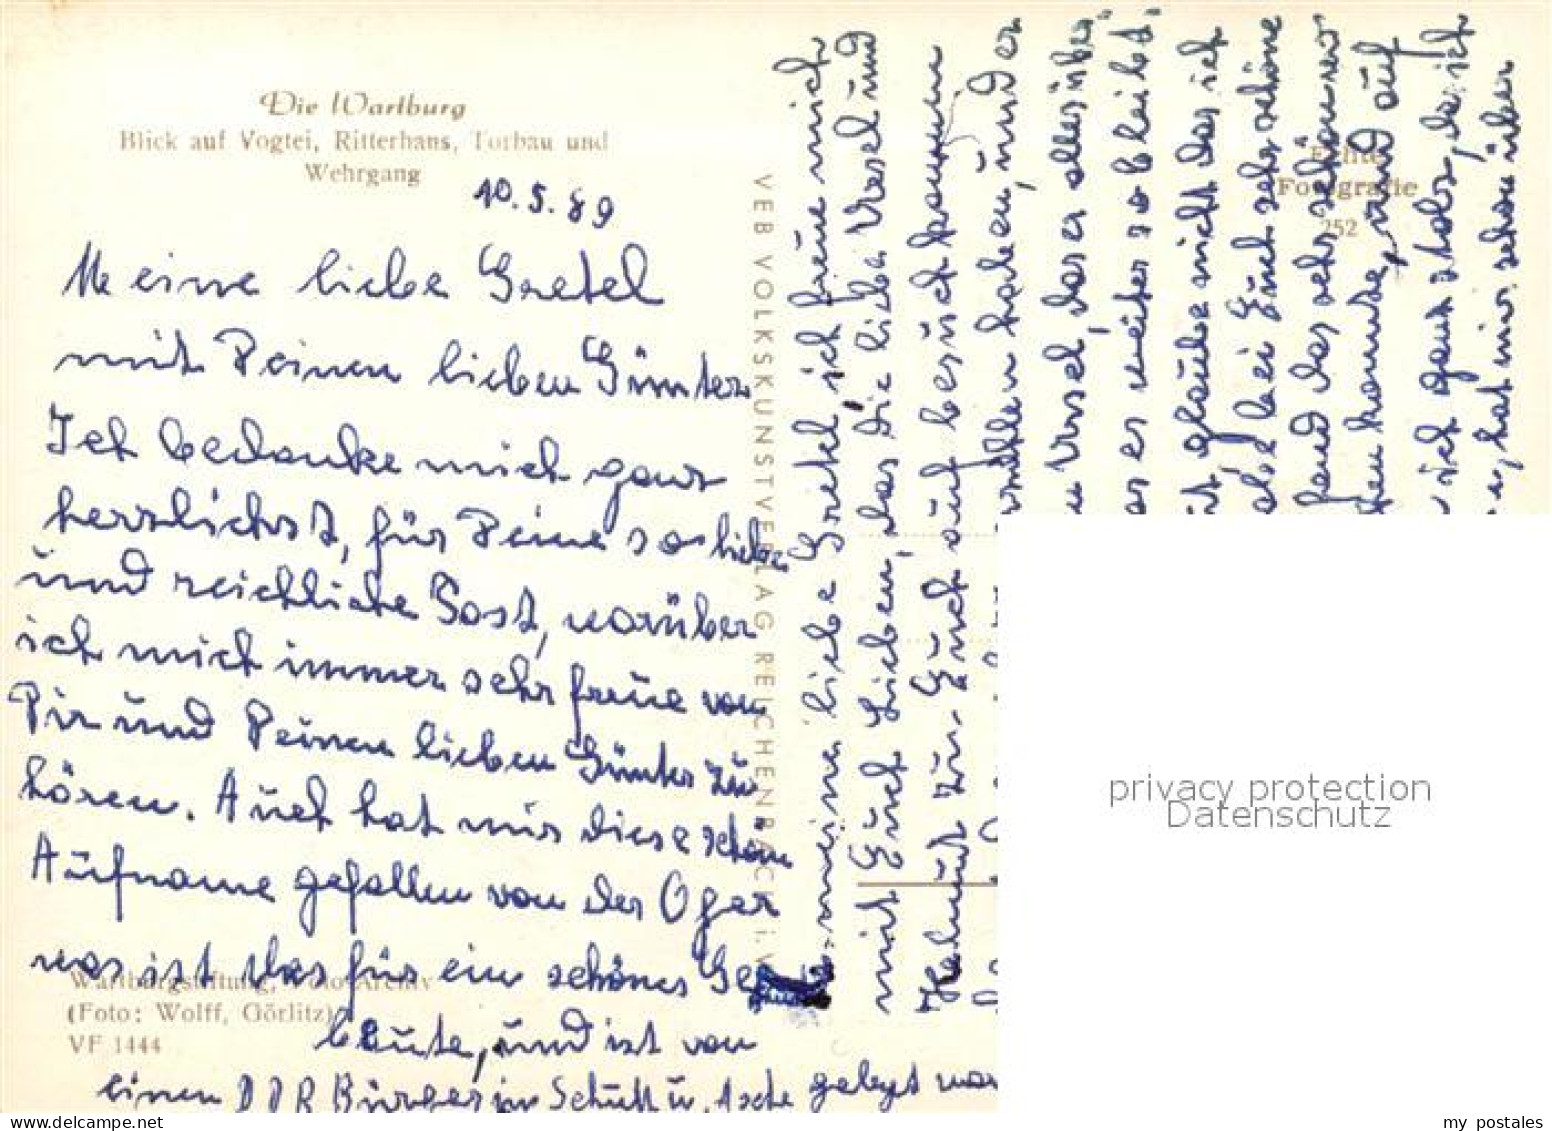 Die Wartburg
Blick auf Vogtei, Ritterhaus, Torbau und
Wehrgang
10.5.89
Meine liebe Gretel
mit Deinen lieben Günter
Ich bedanke mich ganz
herzlichst, für Deine so liebe
und reichliche Post, worüber
ich mich immer sehr freue von
Dir und Deinen lieben Günter zu
hören. Auch hat mir diese schöne
Aufname gefallen von der Oper
was ist das für ein schönes Ge
beute, und ist von
einen DDR Bürger in Schutt u. Asche gelegt wor
Wartburgstiftung, Foto-Archiv
(Foto: Wolff, Görlitz)
VF 1444
VEB VOLKSKUNSTVERLAG REICHENBACH i. V.
Echte
Fotografie
252
meine liebe Gretel ich freue mich
mit Euch Lieben, das die liebe Ursel und
Helmut zur Euch auf besuch kommen
haben, und er
Ursel, das er alles über
er weiter so bleibt.
glaube nicht das ich
bei Euch sehr schöne
fand das sehr schön wo
konnte, und auf
ich ganz stolz, da ich
hat mir schon über
privacy protection
Datenschutz
my postales